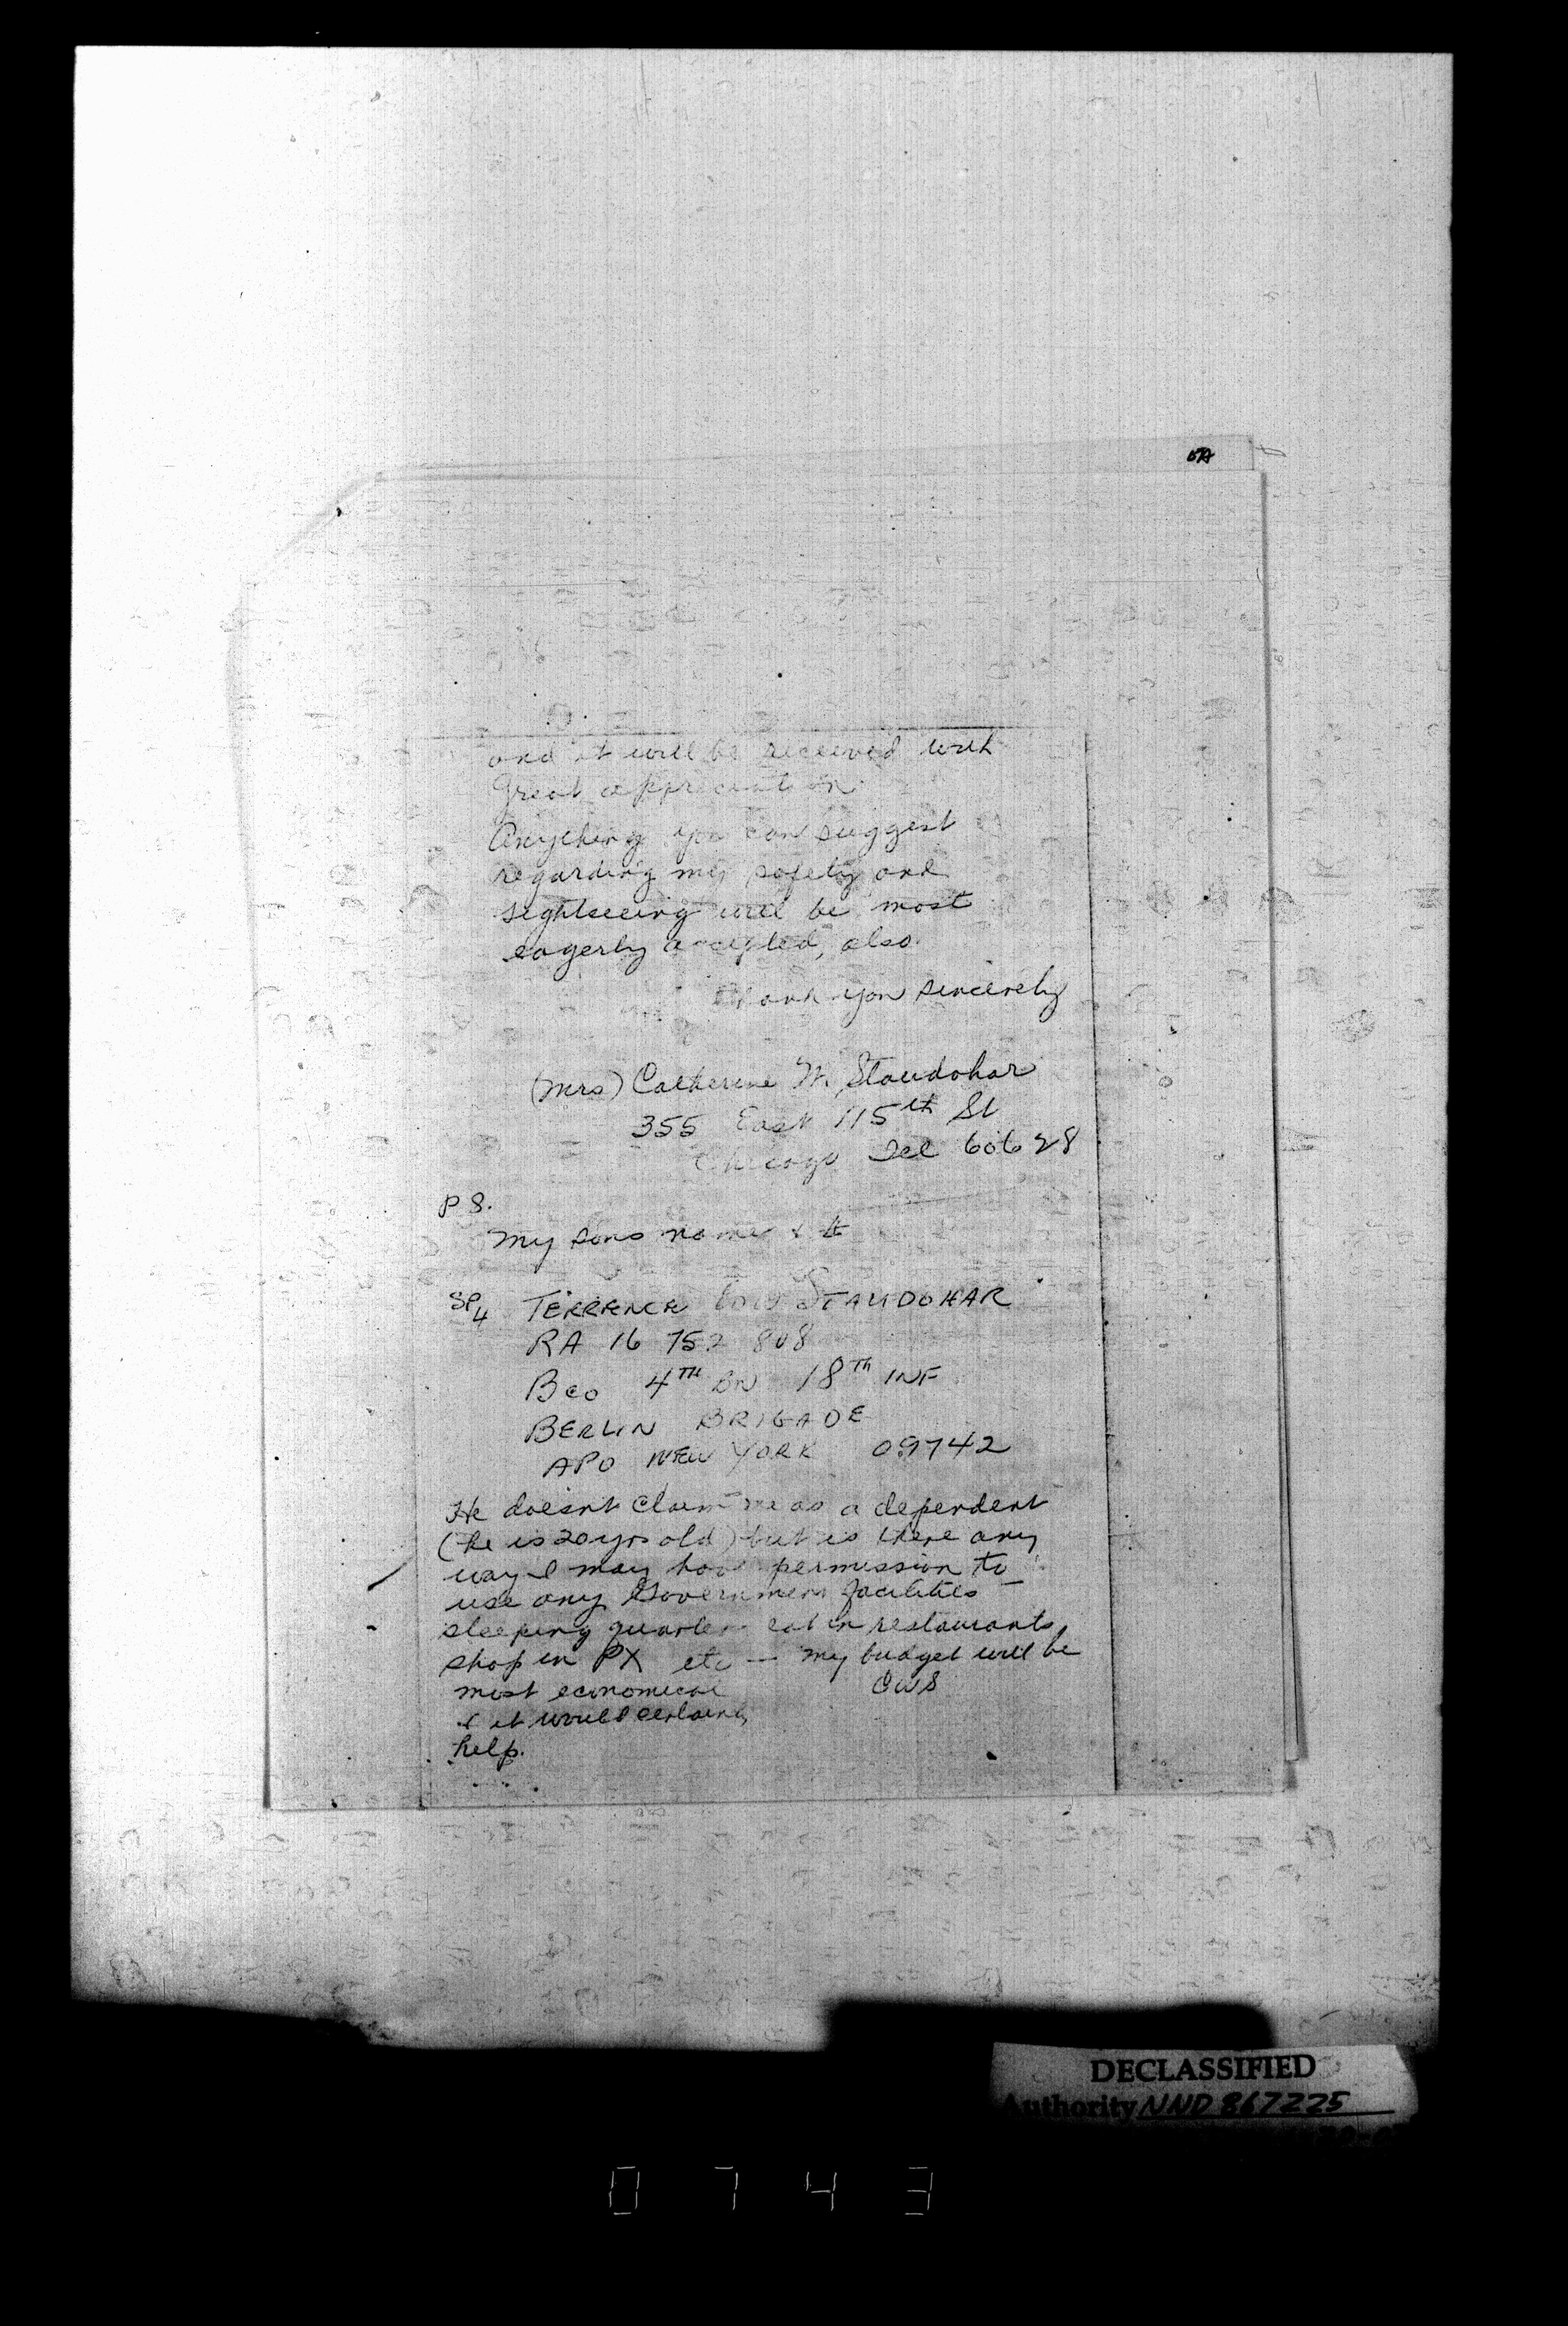 and it will be received with
great appreciation.
Anything you can suggest
regarding my safety and
sightseeing will be most
eagerly accepted, also.
Thank you sincerely
(Mrs) Catherine W. Staudohar
355 East 115th St
Chicago Ill 60628
P S.
My sons name &
SP4 TERRENCE STAUDOHAR
RA 16 752 808
B Co 4TH BN 18TH INF
BERLIN BRIGADE
APO NEW YORK 09742
He doesnt claim me as a dependent
(he is 20 yrs old) but is there any
way I may have permission to
use any Government facilities —
sleeping quarters eat in restaurants,
shop in PX etc — my budget will be
most economical CWS
& it would certainly
help.
DECLASSIFIED
Authority NND 867225
0743